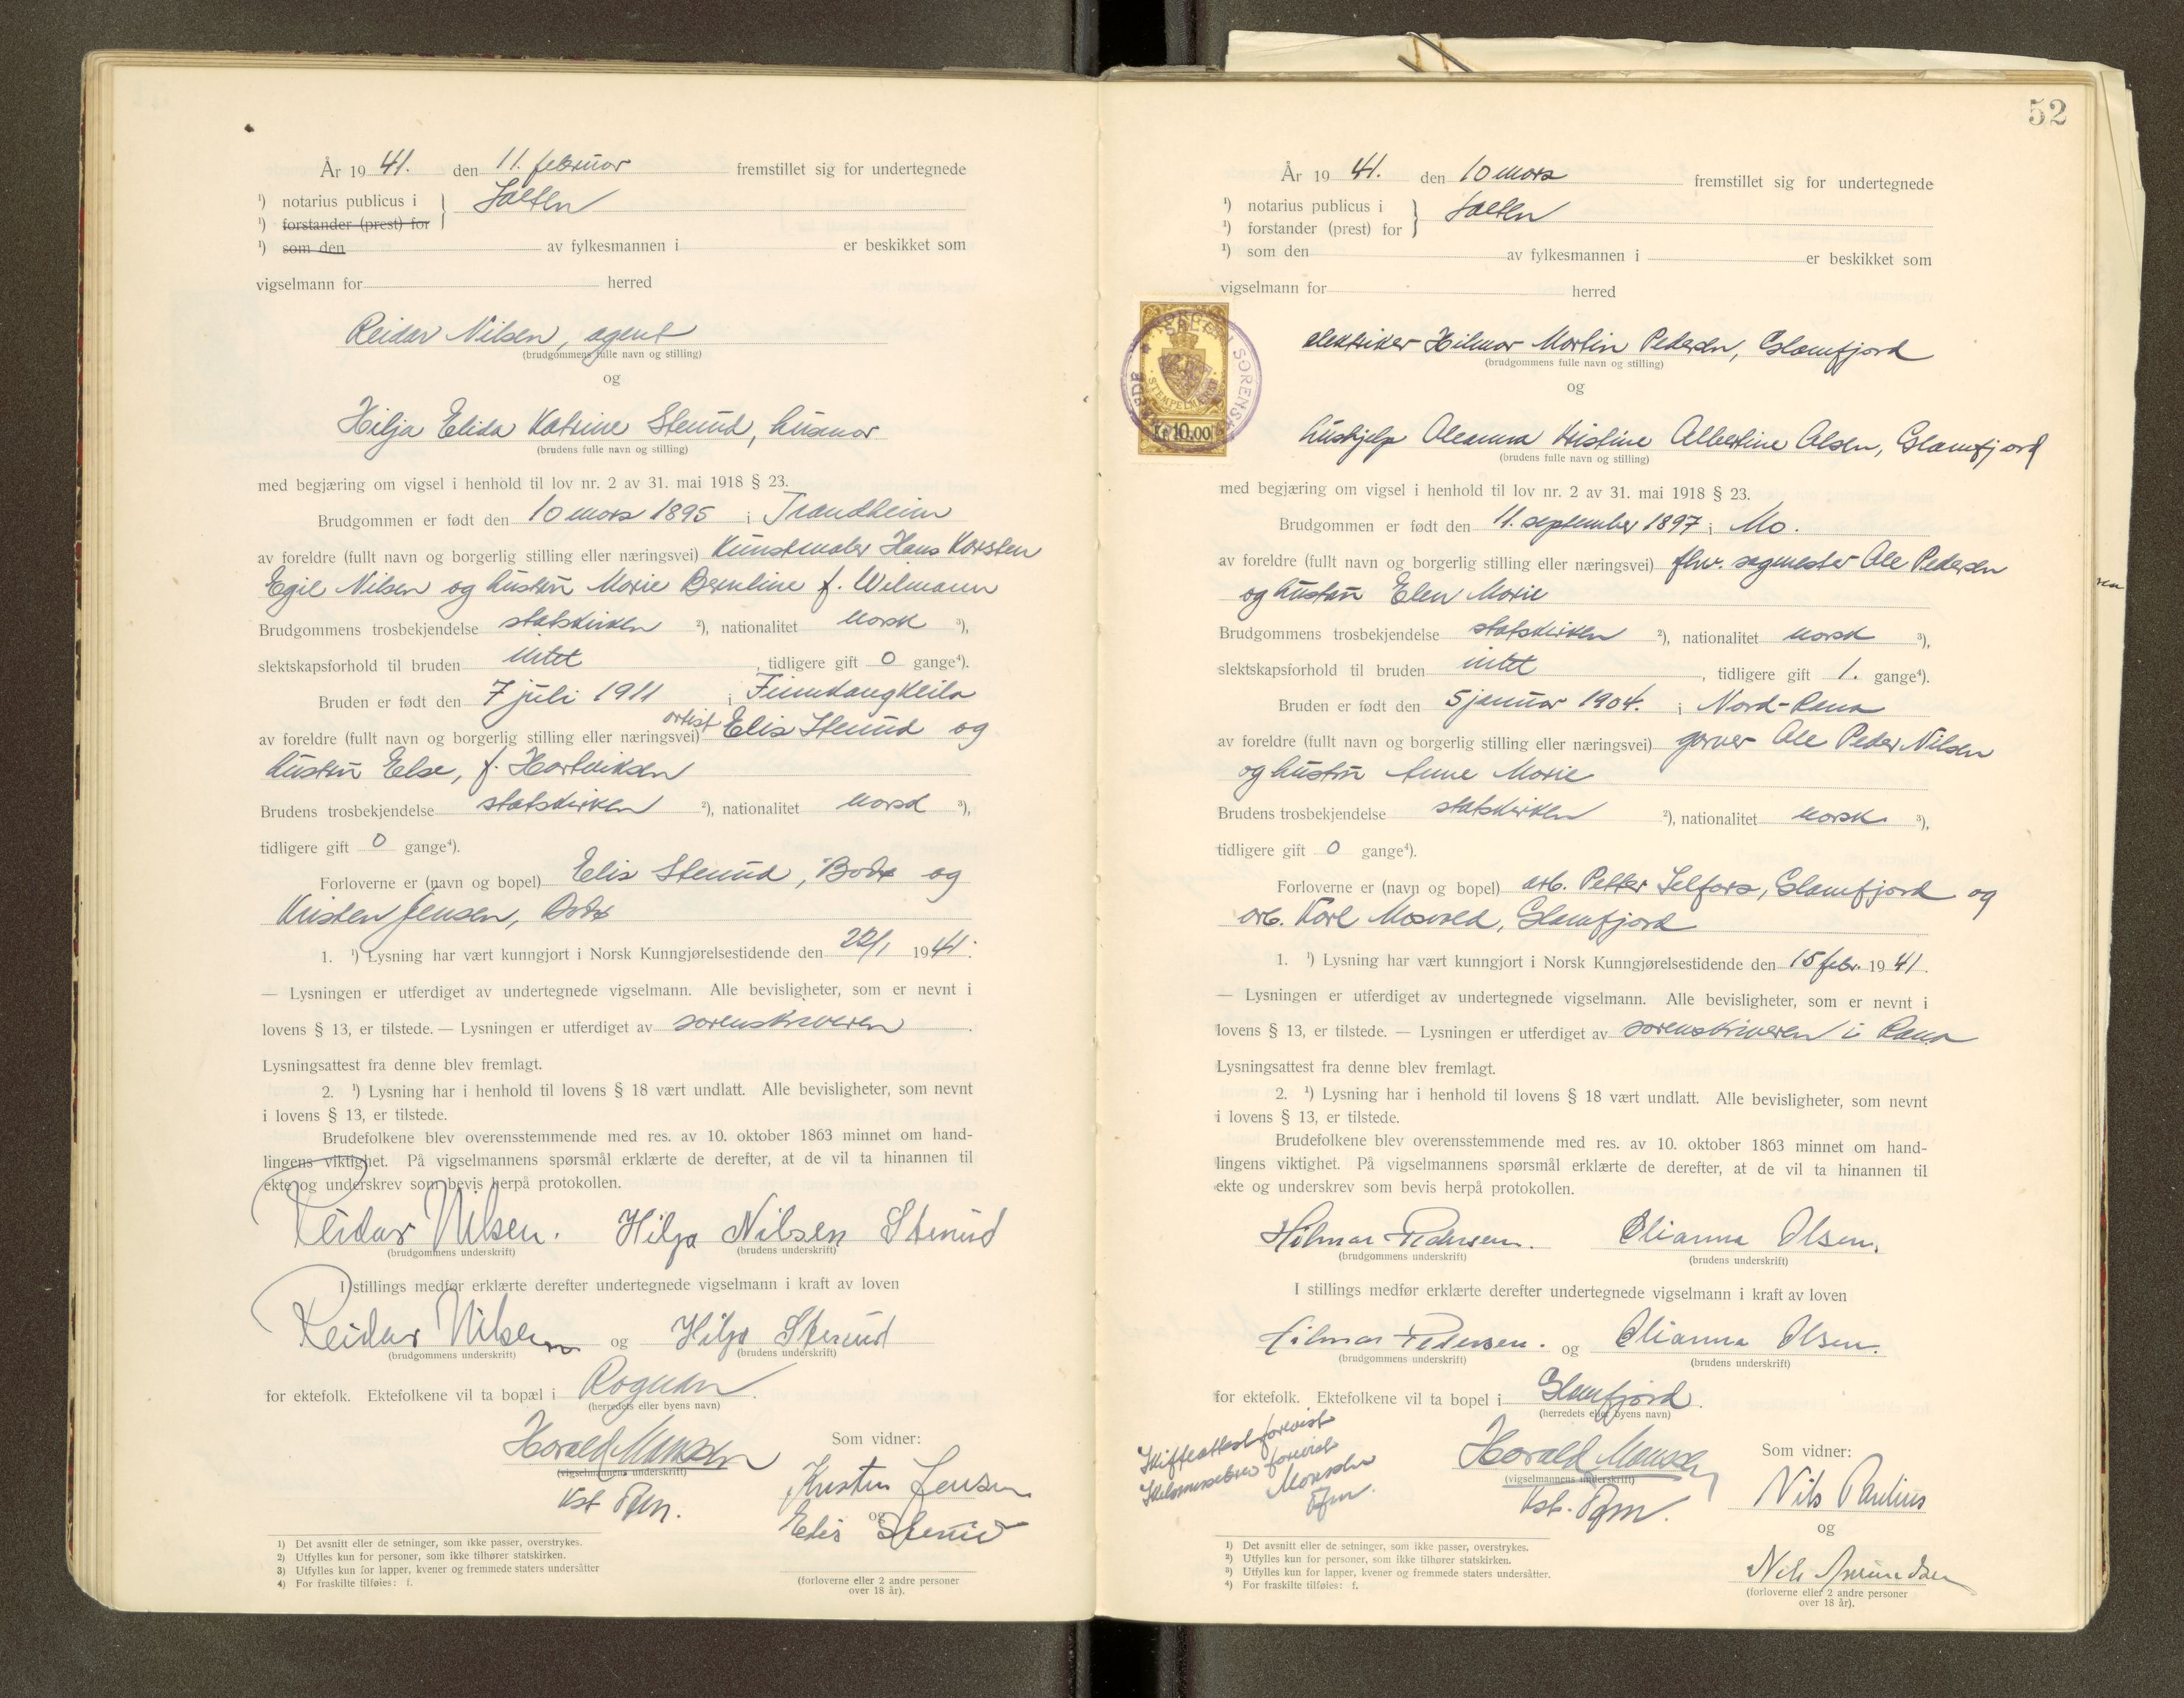 År 19 41. den 11. februar fremstillet sig for undertegnede
¹) notarius publicus i } Salten
¹) forstander (prest) for
¹) som den av fylkesmannen i er beskikket som
vigselmann for herred
Reidar Nilsen, agent
(brudgommens fulle navn og stilling)
og
Hilja Elida Katrine Stenud, husmor
(brudens fulle navn og stilling)
med begjæring om vigsel i henhold til lov nr. 2 av 31. mai 1918 § 23.
Brudgommen er født den 10 mars 1895 i Trondheim
av foreldre (fullt navn og borgerlig stilling eller næringsvei) Kunstmaler Hans Karsten
Egil Nilsen og hustru Marie Bernline f. Wilmann
Brudgommens trosbekjendelse statskirken ²), nationalitet norsk ³),
slektskapsforhold til bruden intet , tidligere gift 0 gange⁴).
Bruden er født den 7 juli 1911 i
av foreldre (fullt navn og borgerlig stilling eller næringsvei) artist Elis Stenud og
hustru Else, f. Hartviksen
Brudens trosbekjendelse statskirken ²), nationalitet norsk ³),
tidligere gift 0 gange⁴).
Forloverne er (navn og bopel) Elis Stenud, Bodø og
Kristen Jensen, Bodø
1. ¹) Lysning har vært kunngjort i Norsk Kunngjørelsestidende den 22/1 1941.
— Lysningen er utferdiget av undertegnede vigselmann. Alle bevisligheter, som er nevnt i
lovens § 13, er tilstede. — Lysningen er utferdiget av sorenskriveren .
Lysningsattest fra denne blev fremlagt.
2. ¹) Lysning har i henhold til lovens § 18 vært undlatt. Alle bevisligheter, som nevnt
i lovens § 13, er tilstede.
Brudefolkene blev overensstemmende med res. av 10. oktober 1863 minnet om hand-
lingens viktighet. På vigselmannens spørsmål erklærte de derefter, at de vil ta hinannen til
ekte og underskrev som bevis herpå protokollen.
Reidar Nilsen. Hilja Nilsen Stenud
(brudgommens underskrift) (brudens underskrift)
I stillings medfør erklærte derefter undertegnede vigselmann i kraft av loven
Reidar Nilsen og Hilja Stenud
(brudgommens underskrift) (brudens underskrift)
for ektefolk. Ektefolkene vil ta bopæl i Rognan .
(herredets eller byens navn)
Harald Monssen Som vidner:
(vigselmannens underskrift)
Kst. Kristen Jensen
og
Elis Stenud
1) Det avsnitt eller de setninger, som ikke passer, overstrykes.
2) Utfylles kun for personer, som ikke tilhører statskirken.
3) Utfylles kun for lapper, kvener og fremmede staters undersåtter
4) For fraskilte tilføies: f.
(forloverne eller 2 andre personer
over 18 år).
52
År 19 41. den 10 mars fremstillet sig for undertegnede
¹) notarius publicus i } Salten
¹) forstander (prest) for
¹) som den av fylkesmannen i er beskikket som
vigselmann for herred
STEMPELMERKE
Kr 10.00
elektriker Hilmar Martin Pedersen, Glomfjord
(brudgommens fulle navn og stilling)
og
hushjelp Oleanna Kristine Albertine Olsen, Glomfjord
(brudens fulle navn og stilling)
med begjæring om vigsel i henhold til lov nr. 2 av 31. mai 1918 § 23.
Brudgommen er født den 11. september 1897 i Mo.
av foreldre (fullt navn og borgerlig stilling eller næringsvei) fhv. sagmester Ole Pedersen
og hustru Elen Marie
Brudgommens trosbekjendelse statskirken ²), nationalitet norsk ³),
slektskapsforhold til bruden intet , tidligere gift 1. gange⁴).
Bruden er født den 5 januar 1904. i Nord-Rana
av foreldre (fullt navn og borgerlig stilling eller næringsvei) garver Ole Peder Nilsen
og hustru Anne Marie
Brudens trosbekjendelse statskirken ²), nationalitet norsk ³),
tidligere gift 0 gange⁴).
Forloverne er (navn og bopel) arb. Petter Selfors, Glomfjord og
arb. Karl Mosvold, Glomfjord
1. ¹) Lysning har vært kunngjort i Norsk Kunngjørelsestidende den 15 febr. 1941.
— Lysningen er utferdiget av undertegnede vigselmann. Alle bevisligheter, som er nevnt i
lovens § 13, er tilstede. — Lysningen er utferdiget av sorenskriveren i Rana
Lysningsattest fra denne blev fremlagt.
2. ¹) Lysning har i henhold til lovens § 18 vært undlatt. Alle bevisligheter, som nevnt
i lovens § 13, er tilstede.
Brudefolkene blev overensstemmende med res. av 10. oktober 1863 minnet om hand-
lingens viktighet. På vigselmannens spørsmål erklærte de derefter, at de vil ta hinannen til
ekte og underskrev som bevis herpå protokollen.
Hilmar Pedersen. Olianna Olsen.
(brudgommens underskrift) (brudens underskrift)
I stillings medfør erklærte derefter undertegnede vigselmann i kraft av loven
Hilmar Pedersen. og Olianna Olsen.
(brudgommens underskrift) (brudens underskrift)
for ektefolk. Ektefolkene vil ta bopel i Glomfjord .
(herredets eller byens navn)
Skifteattest forevist
Skilsmisse forevist
Monssen
Harald Monssen Som vidner:
(vigselmannens underskrift)
Kst. Nils Paulius
og
Nils Amundsen
1) Det avsnitt eller de setninger, som ikke passer, overstrykes.
2) Utfylles kun for personer, som ikke tilhører statskirken.
3) Utfylles kun for lapper, kvener og fremmede staters undersåtter.
4) For fraskilte tilføies: f.
(forloverne eller 2 andre personer
over 18 år).